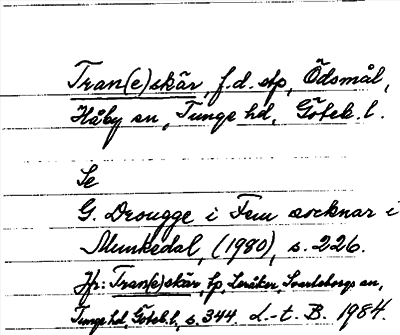 Tran(e)skär, f.d. stp, Ödsmål,
Håby sn, Tunge hd, Göteb. l.
Se
G. Drougge i Fem socknar i
Munkedal, (1980), s. 226.
Jfr: Tran(e)skär tp, Leråker, Svarteborgs sn,
Tunge hd, Göteb. l, s. 344. L-t. B. 1984.